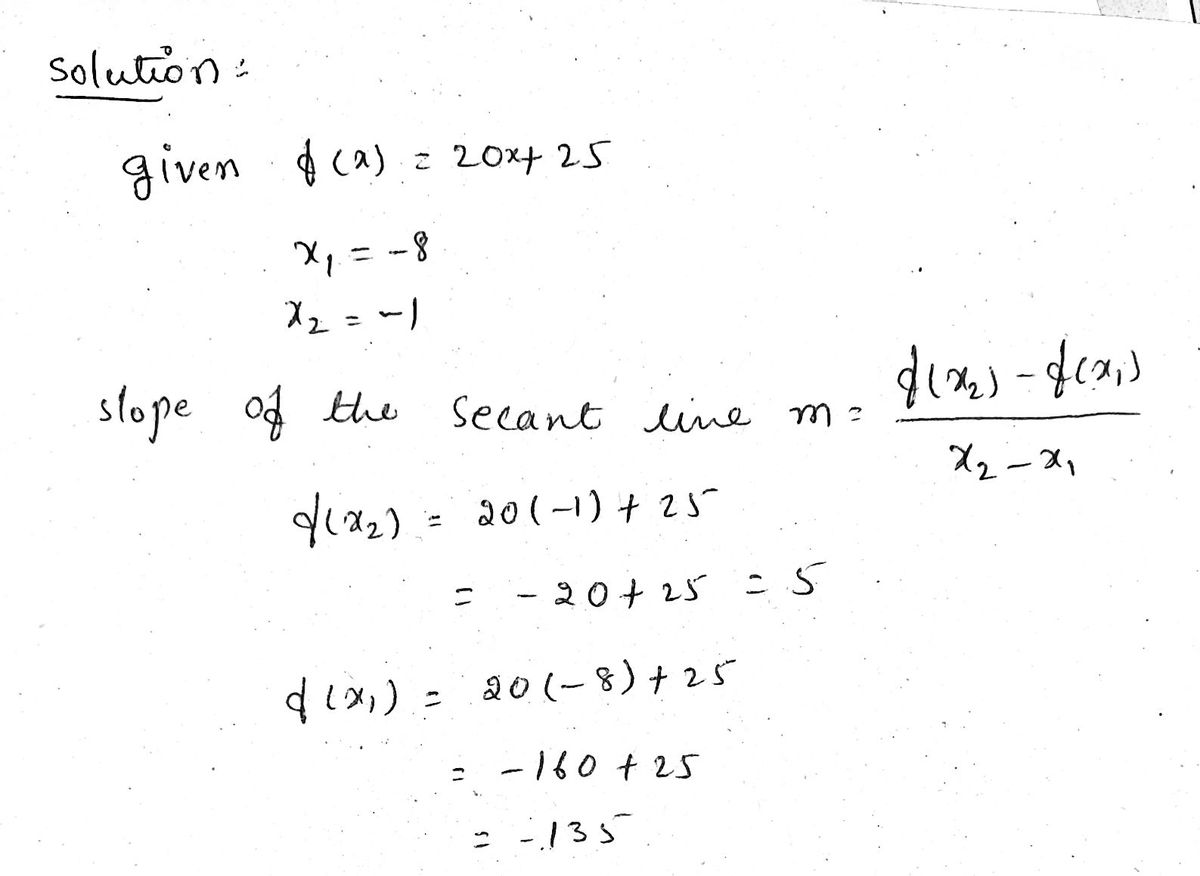 Solution:
given f(x) = 20x+ 25
x₁ = -8
x₂ = -1
slope of the secant line m = f(x₂) - f(x₁) / x₂ - x₁
f(x₂) = 20(-1) + 25
= - 20 + 25 = 5
f(x₁) = 20(-8) + 25
= -160 + 25
= -135